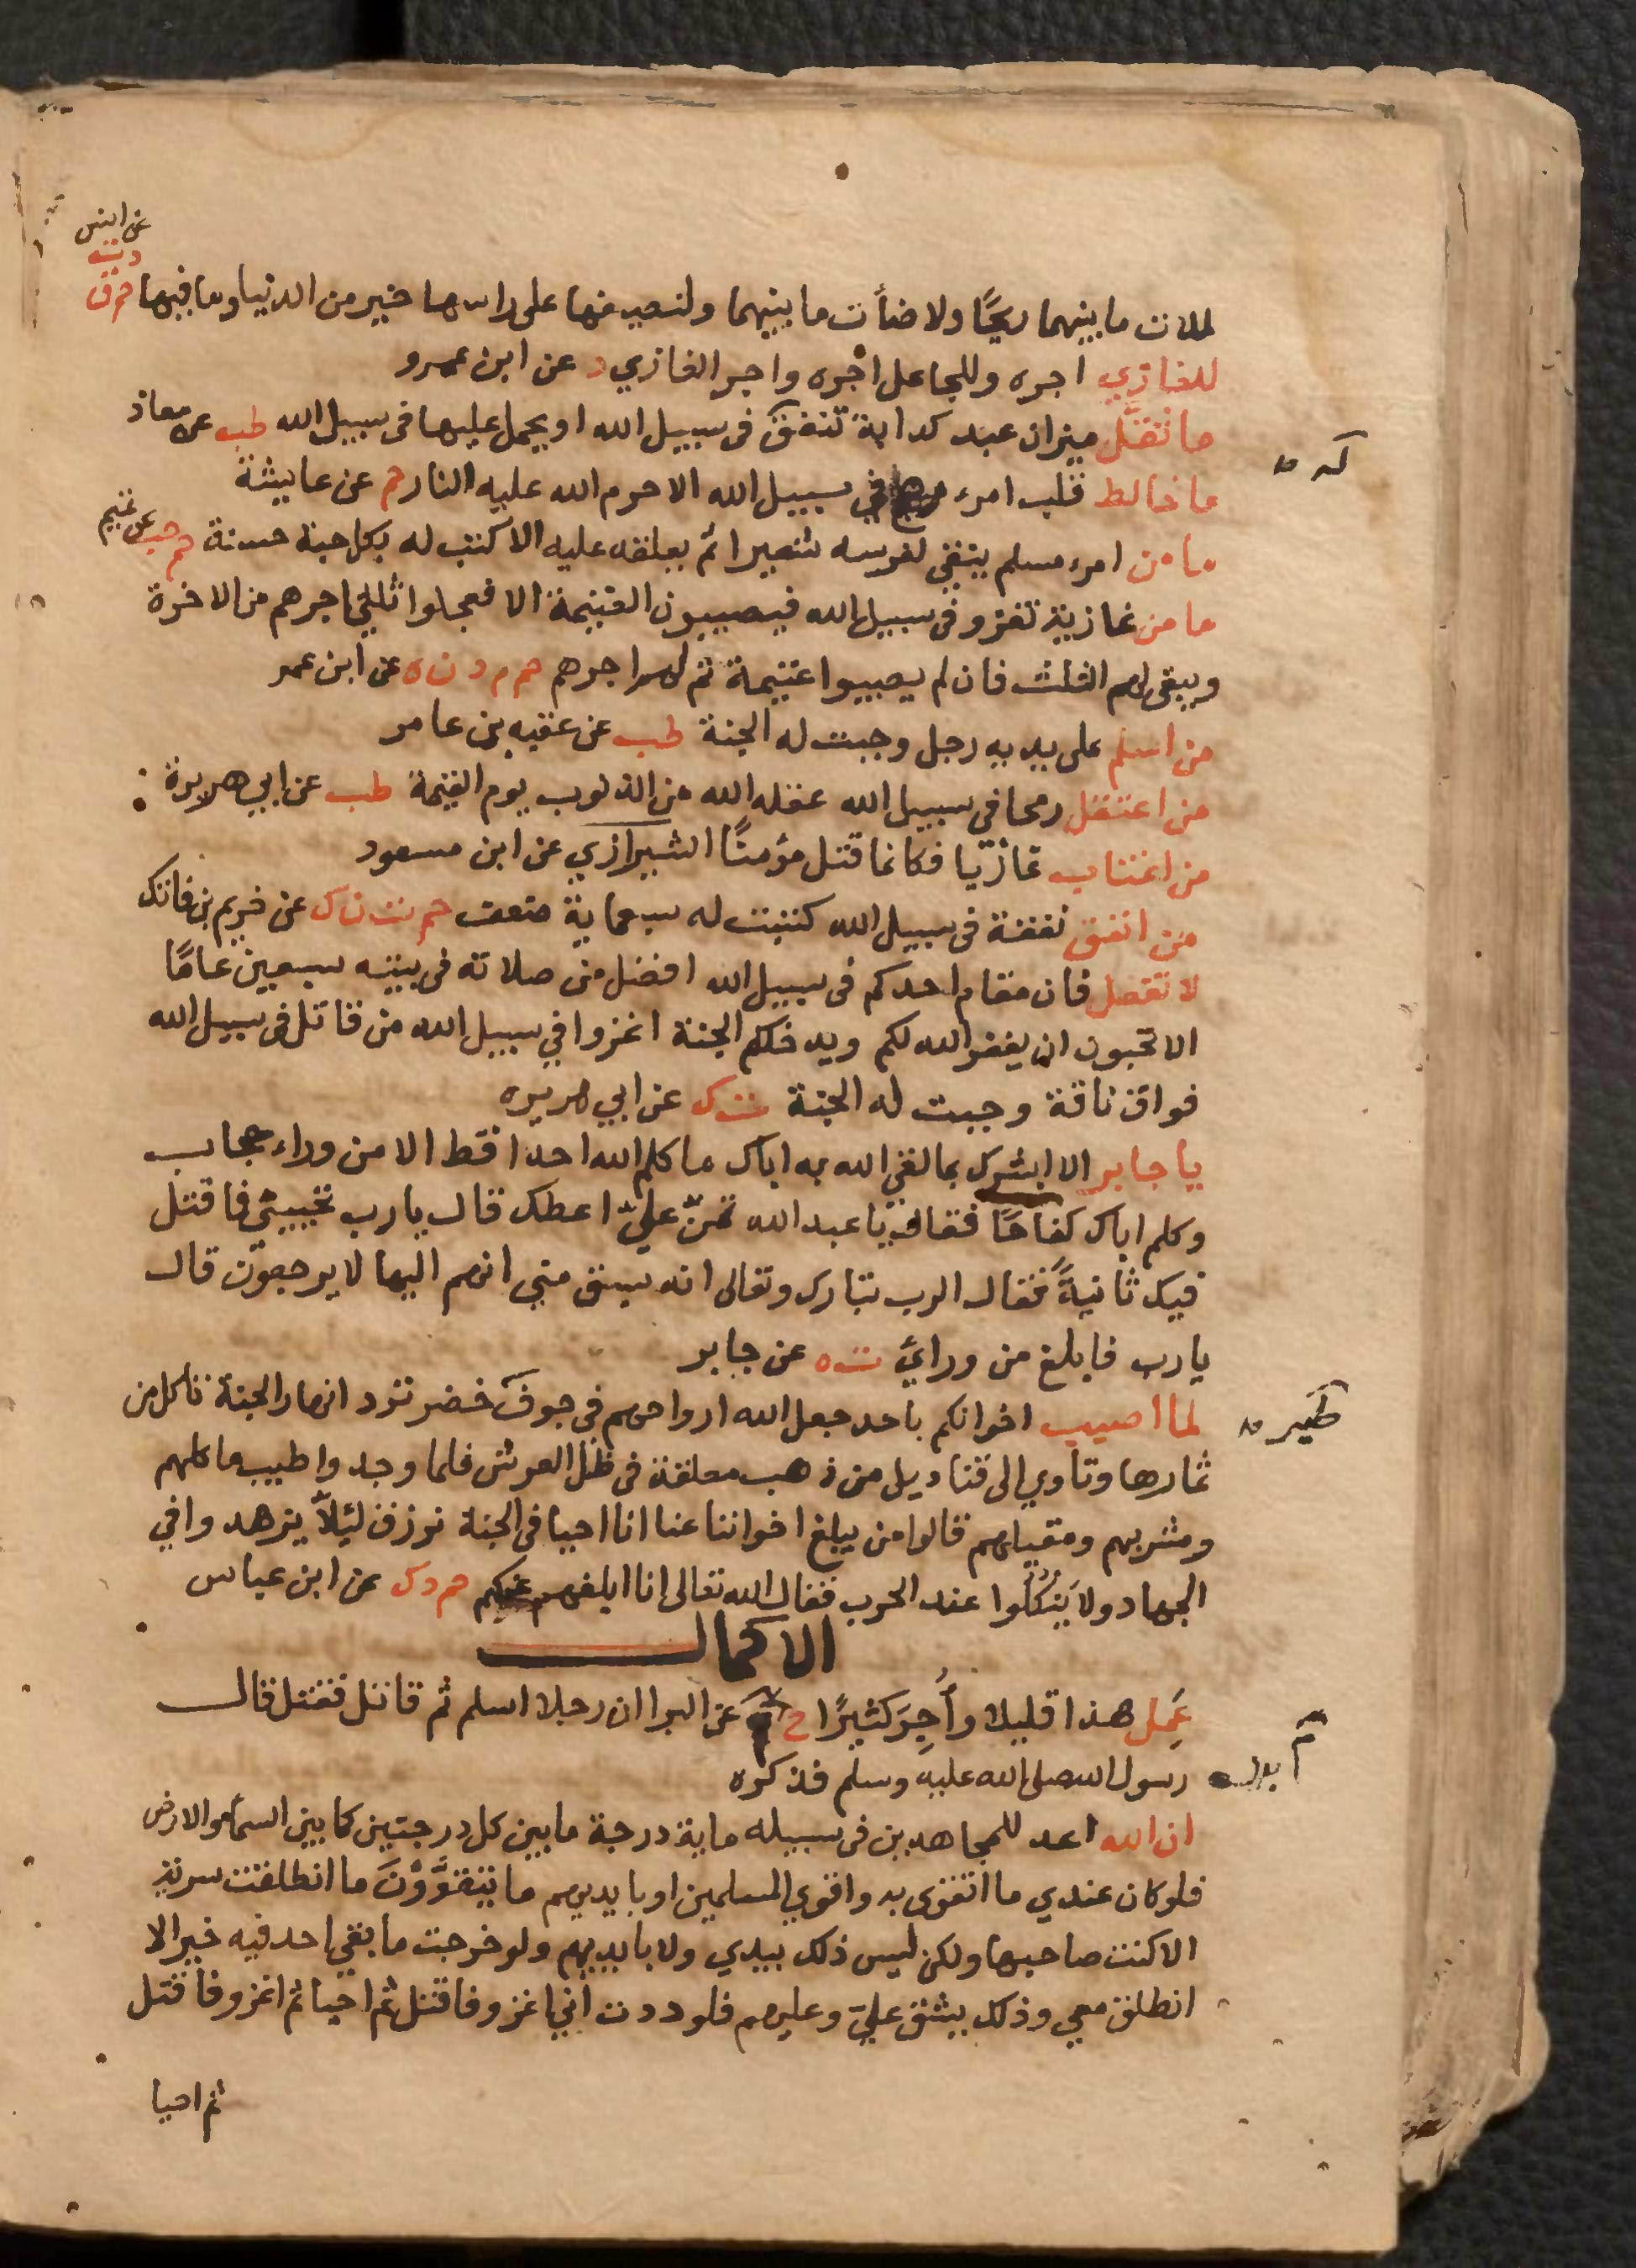 عن انس
د ت ه
لملات ما بينهما ريحًا ولاضأت ما بينهما ولنصيفها على راسها خير من الدنيا وما فيها حم ق
للغازي اجره وللجاعل اجره واجر الغازي د عن ابن عمرو
ما ثقّل ميزان عبد كدابة تنفق فى سبيل الله او يحمل عليها فى سبيل الله طب عن معاذ
ما خالط قلب امرء رهج في سبيل الله الا حرم الله عليه النار حم عن عايشة
ما من امرء مسلم ينقي لفرسه شعيرا ثم يعلفه عليه الا كتب له بكل حبة حسنة حم هب عن تميم
ما من غازية تغزو فى سبيل الله فيصيبون الغنيمة الا تعجلوا ثلثي اجرهم من الاخرة
ويبقى لهم الثلث فان لم يصيبوا غنيمة تم لهم اجرهم حم م د ن ه عن ابن عمر
من اسلم على يديه رجل وجبت له الجنة طب عن عقبه بن عامر
من اعتقل رمحا في سبيل الله عقله الله من الذنوب يوم القيمة طب عن ابي هريرة
من اغتاب غازيا فكانما قتل مؤمنًا الشيرازي عن ابن مسعود
من انفق نفقة فى سبيل الله كتبت له سبعماية ضعف حم ت ن ك عن خريم بن فاتك
لا تفعل فان مقام احدكم فى سبيل الله افضل من صلاته فى بيته سبعين عامًا
الا تحبون ان يغفر الله لكم ويدخلكم الجنة اغزوا في سبيل الله من قاتل في سبيل الله
فواق ناقة وجبت له الجنة ت ك عن ابي هريره
يا جابر الا ابشرك بما لقي الله به اباك ما كلم الله احدا قط الا من وراء حجاب
وكلم اباك كفاحًا فقال يا عبد الله تمنّ عليّ اعطك قال يا رب تحييني فاقتل
فيك ثانيةً فقال الرب تبارك وتعالى انه سبق مني انهم اليها لا يرجعون قال
يا رب فابلغ من ورائي ت ه عن جابر
لما اصيب اخوانكم باحد جعل الله ارواحهم في جوف خضر ترد انهار الجنة تاكل من
طير
ثمارها وتاوي الى قناديل من ذهب معلقة فى ظل العرش فلما وجدوا طيب ماكلهم
ومشربهم ومقيلهم قالوا من يبلغ اخواننا عنا انا احيا فى الجنة نرزق ليلاّ يزهدوا في
الجهاد ولا يَنكُلُوا عند الحرب فقال الله تعالى انا ابلغهم عنكم حم د ك عن ابن عباس
الاكمال
عَمِل هذا قليلا وأُجِرَ كثيرًا خ عن البرا ان رجلا اسلم ثم قاتل فقتل قال
رسول الله صلى الله عليه وسلم فذكره
ان الله اعد للمجاهدين فى سبيله ماية درجة ما بين كل درجتين كما بين السماء والارض
فلو كان عندي ما اتقوى به واقوي المسلمين او بايديهم ما يتقوَّوْنَ ما انطلقت سرية
الا كنت صاحبها ولكن ليس ذلك بيدي ولا بايديهم ولو خرجت ما بقي احد فيه خير الا
انطلق معي وذلك يشق عليّ وعليهم فلوددت أني اغزو فاقتل ثم احيا ثم اغزو فاقتل
ثم احيا